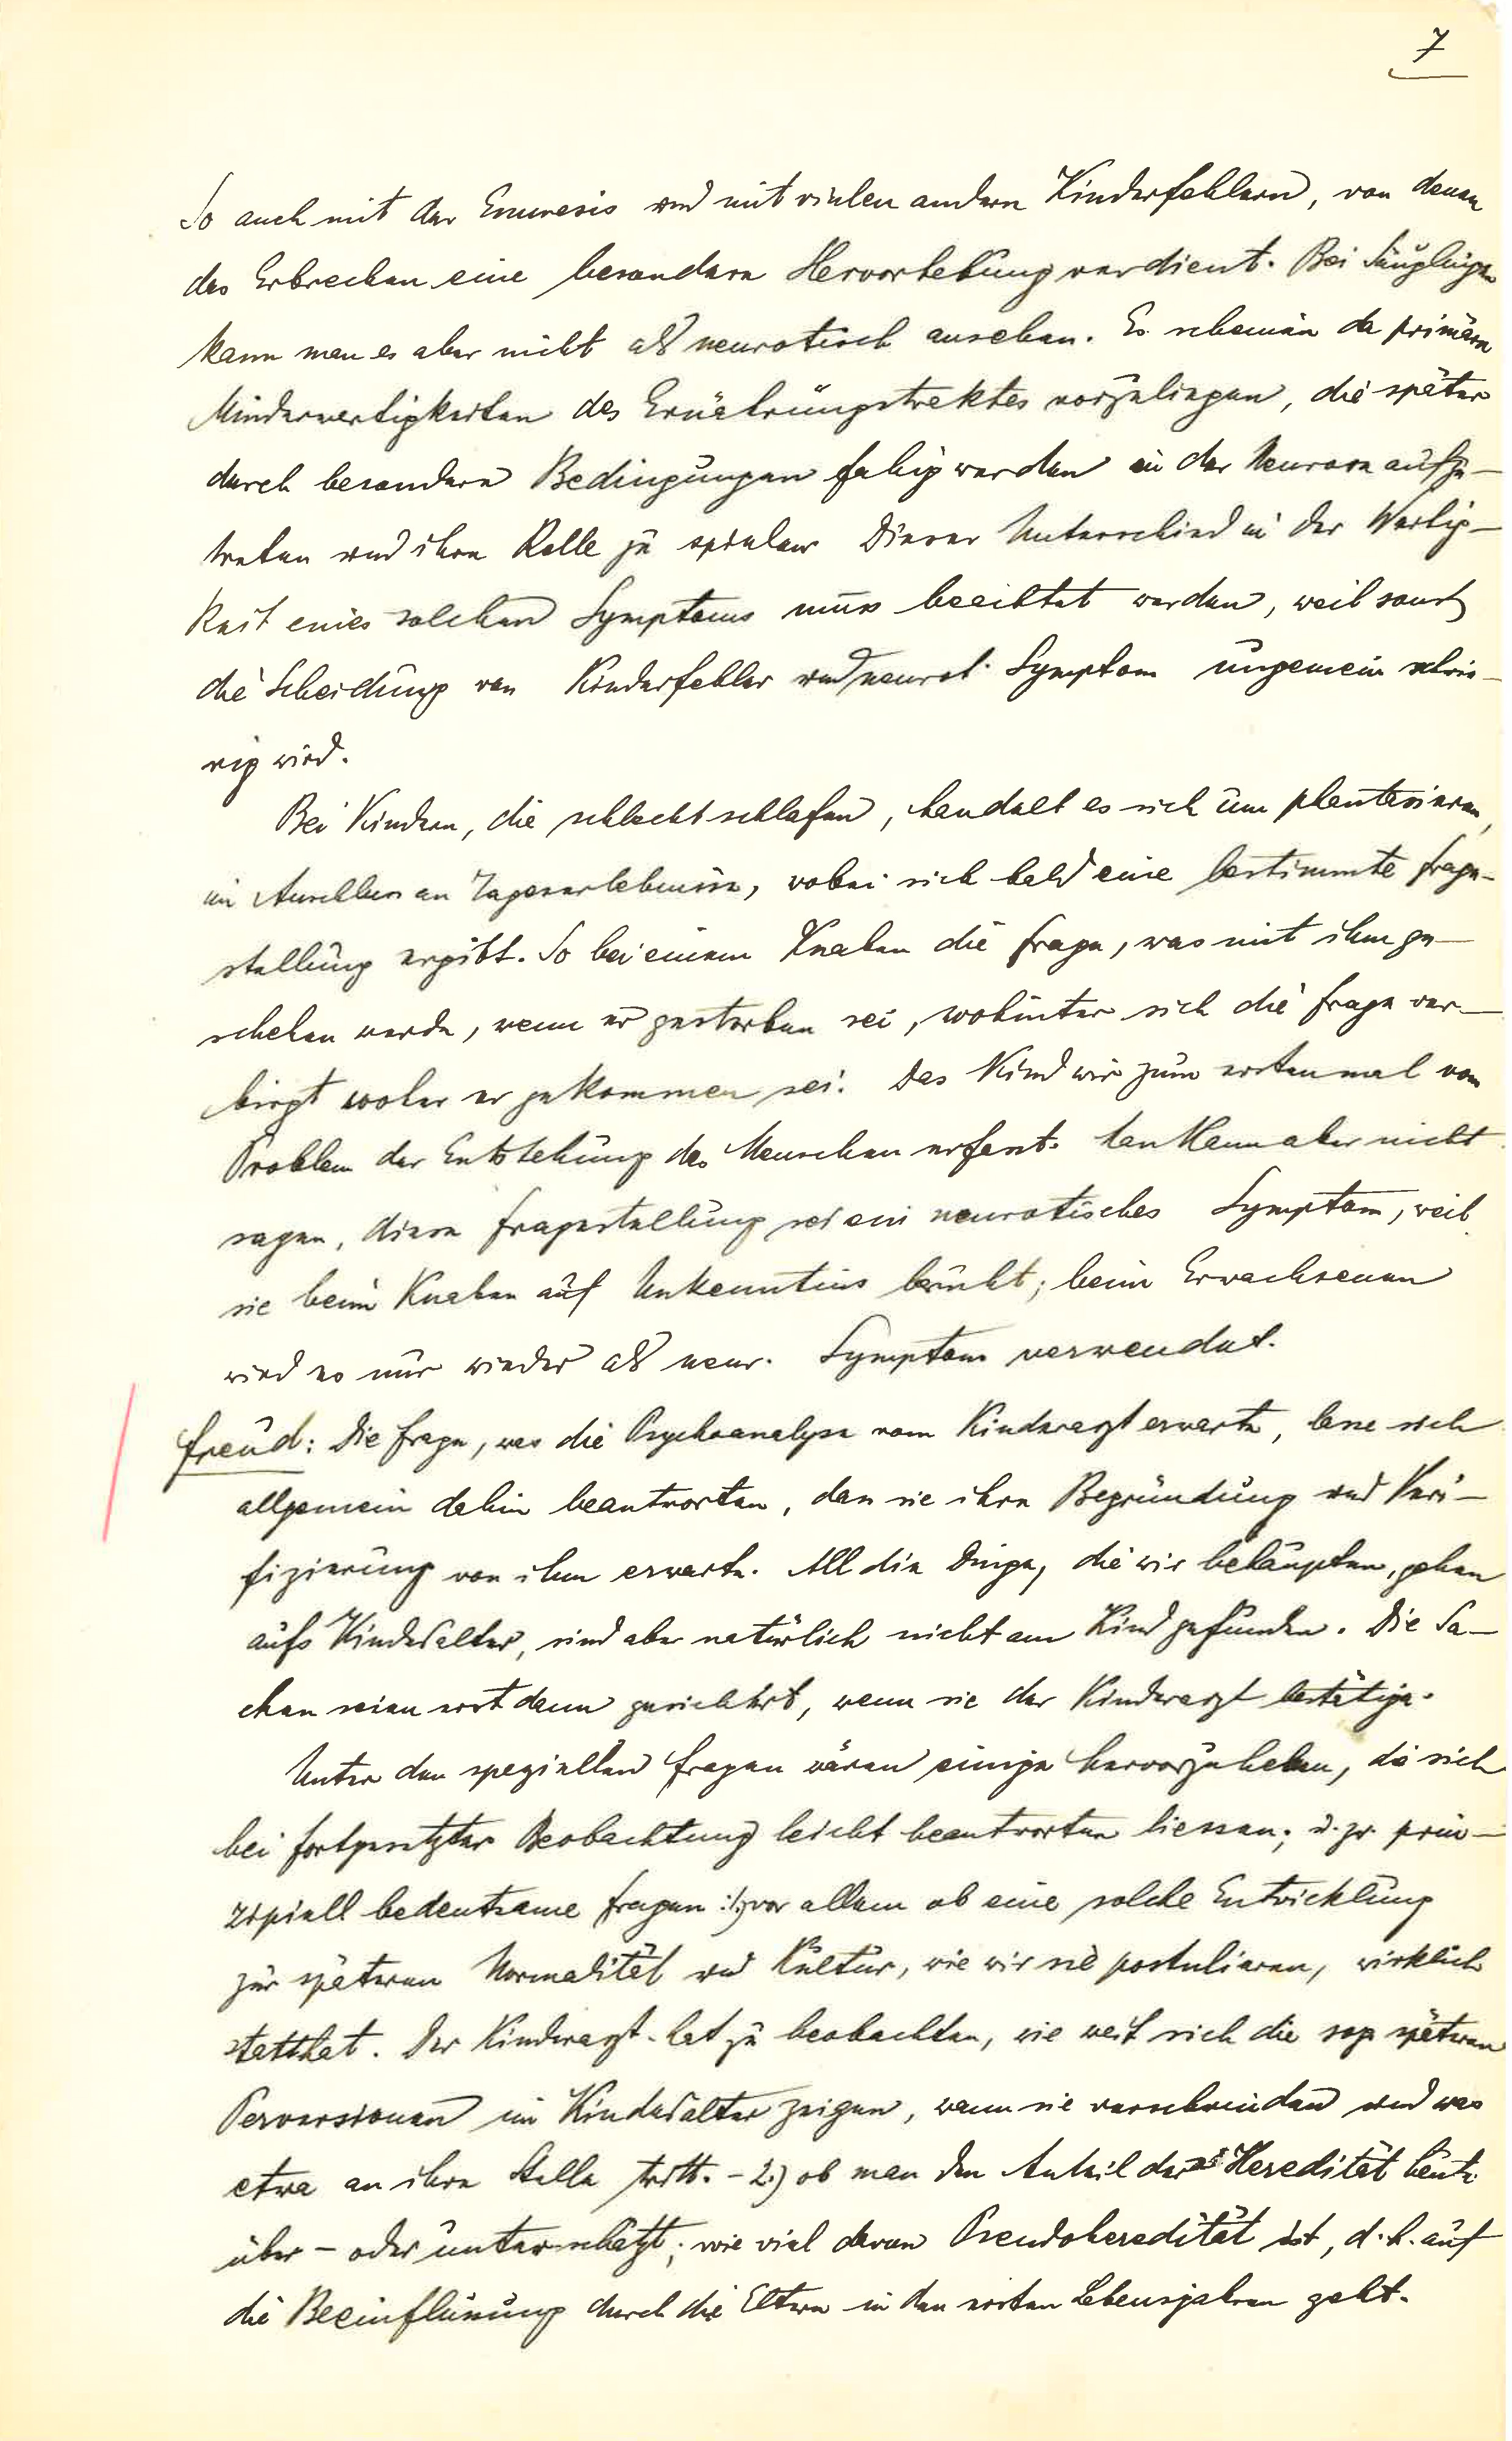 7
So auch mit der Enuresis und mit vielen andern Kinderfehlern, von denen
das Erbrechen eine besondere Hervorhebung verdient. Bei Säuglingen
kann man es aber nicht als neurotisch ansehen. Es scheinen da primäre
Minderwertigkeiten des Ernährungstraktes vorzuliegen, die später
durch besondere Bedingungen fähig werden in der Neurose aufzu-
treten und ihre Rolle zu spielen. Dieser Unterschied in der Wertig-
keit eines solchen Symptoms muss beachtet werden, weil sonst
die Scheidung von Kinderfehler und neurot. Symptom ungemein schwie-
rig wird.
Bei Kindern, die schlecht schlafen, handelt es sich um phantasieren,
im Anschluss an Tageserlebnisse, wobei sich bald eine bestimmte Frage-
stellung ergibt. So bei einem Knaben die Frage, was mit ihm ge-
schehen werde, wenn er gestorben sei, wohinter sich die Frage ver-
birgt woher er gekommen sei. Das Kind wir zum erstenmal vom
Problem der Entstehung des Menschen erfasst. Man kann aber nicht
sagen, diese Fragestellung sei ein neurotisches Symptom, weil
sie beim Knaben auf Unkenntnis beruht; beim Erwachsenen
wird es nur wieder als neur. Symptom verwendet.
Freud: Die Frage, was die Psychoanalyse vom Kinderarzt erwarte, lasse sich
allgemein dahin beantworten, dass sie ihre Begründung und Veri-
fizierung von ihm erwarte. All die Dinge, die wir behaupten, gehen
aufs Kindesalter, sind aber natürlich nicht am Kind gefunden. Die Sa-
chen seien erst dann gesichert, wenn sie der Kinderarzt bestätige.
Unter den speziellen Fragen wären einige hervorzuheben, die sich
bei fortgesetzter Beobachtung leicht beantworten liessen; u. zw. prin-
zipiell bedeutsame Fragen: 1.) vor allem ob eine solche Entwicklung
zur späteren Normalität und Kultur, wie wir sie postulieren, wirklich
statthat. Der Kinderarzt hat zu beobachten, wie weit sich die sog. späteren
Perversionen im Kindesalter zeigen, wann sie verschwinden und was
etwa an ihre Stelle tritt. - 2.) ob man den Anteil der Heredität heute
über- oder unterschätzt; wie viel davon Pseudoheredität ist, d. h. auf
die Beeinflussung durch die Eltern in den ersten Lebensjahren geht.